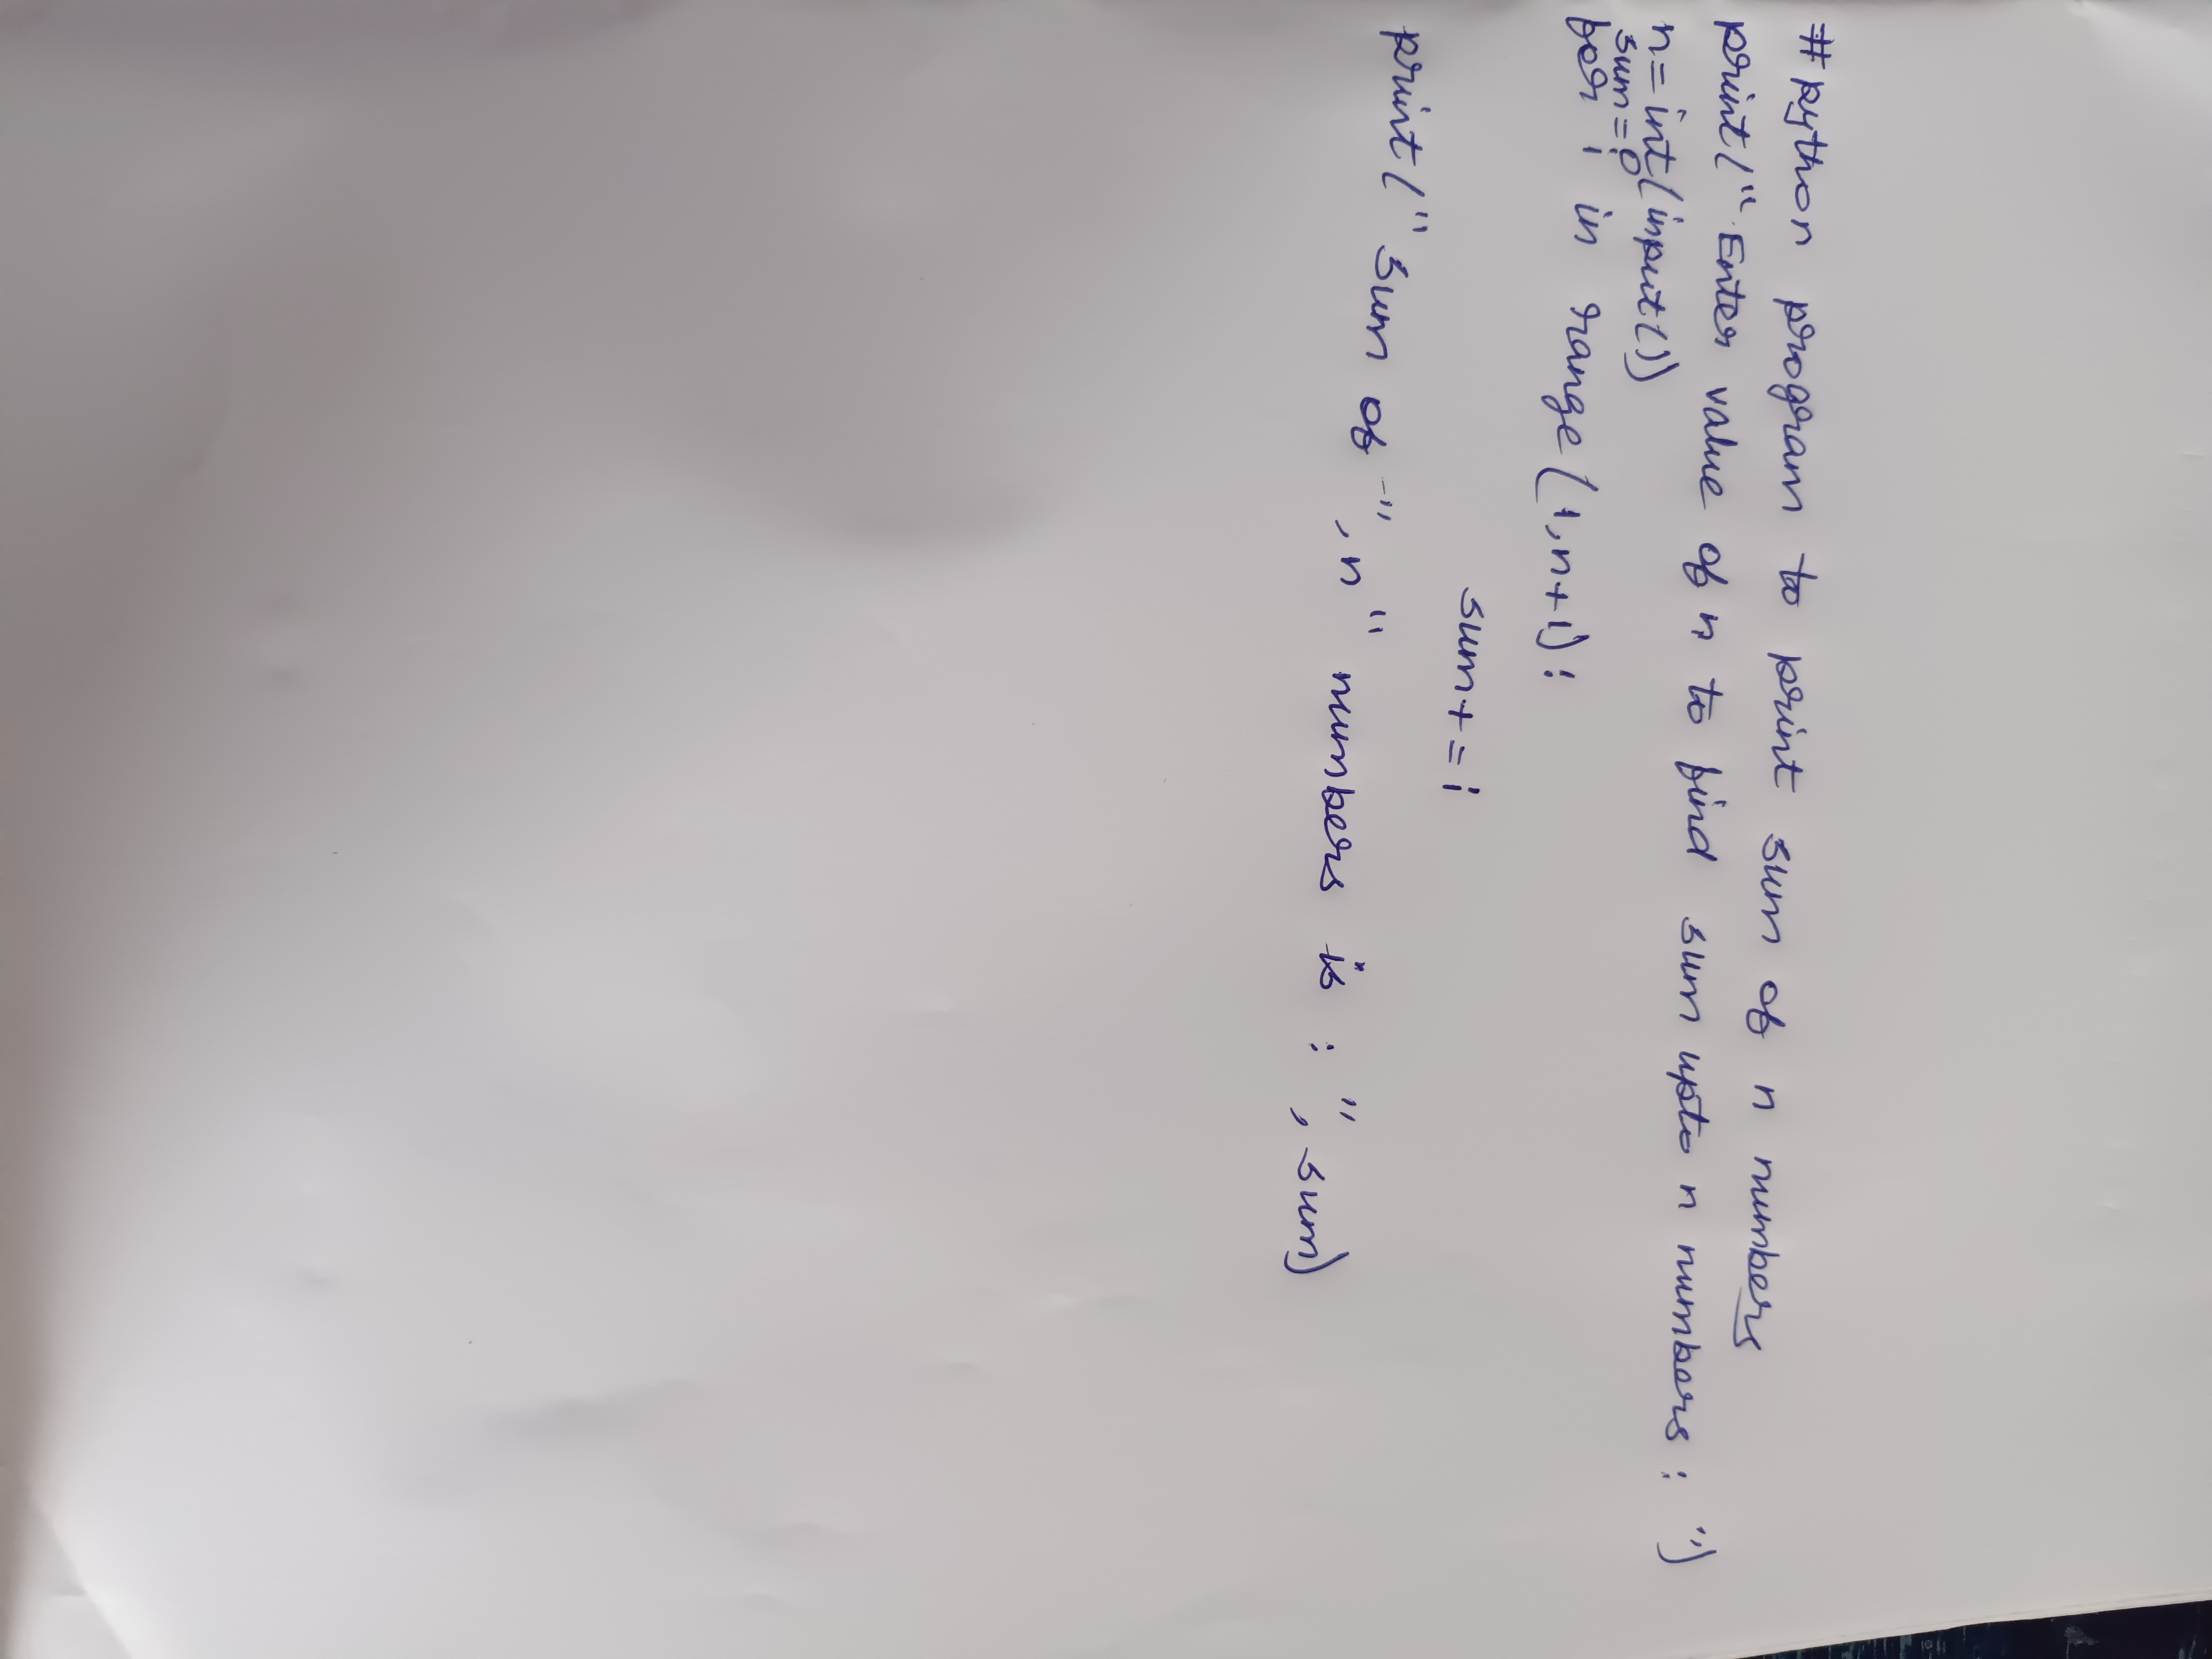 # python program to print sum of n numbers
print(" Enter value of n to find sum upto n numbers : ")
n=int(input())
sum=0
for i in range(1,n+1):
sum+=i
print(" sum of ",n" numbers is : ",sum)